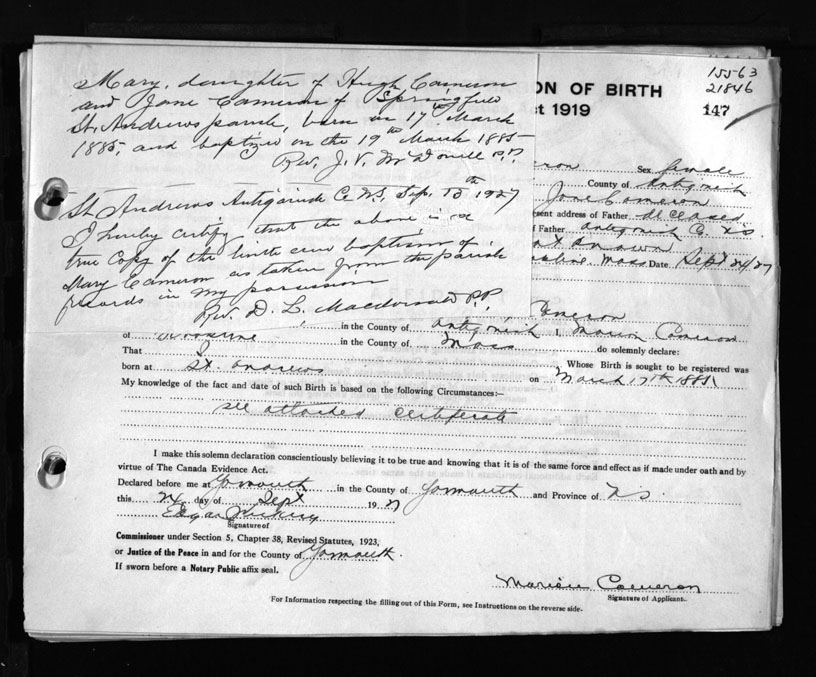 Mary, daughter of Hugh Cameron
and Jane Cameron of Springfield
St. Andrews parish, born on 17th March
1885, and baptized on the 19th March 1885
Rev. J. V. McDonell P.P.
St Andrews Antigonish Co. N.S, Sep. 13th 1927
I hereby certify that the above is a
true copy of the birth and baptism of
Mary Cameron as taken from the parish
records in my possession
Rev. D. L. Macdonald P.P.
15563
21846
ON OF BIRTH
147
ct 1919
eron Sex female
County of Antigonish
Jane Cameron
esent address of Father deceased
f Father Antigonish Co. N.S.
not known
Mass Date Sept 24/27
Cameron
in the County of Antigonish I, Marion Cameron
of in the County of Mass do solemnly declare:
That I Whose Birth is sought to be registered was
born at St. Andrews on March 17th 1885
My knowledge of the fact and date of such Birth is based on the following Circumstances:—
see attached certificate
I make this solemn declaration conscientiously believing it to be true and knowing that it is of the same force and effect as if made under oath and by
virtue of The Canada Evidence Act.
Declared before me at Yarmouth in the County of Yarmouth and Province of N.S.
this 24 day of Sept 1927
Edgar
Signature of
Commissioner under Section 5, Chapter 38, Revised Statutes, 1923,
or Justice of the Peace in and for the County of Yarmouth.
If sworn before a Notary Public affix seal.
Marion Cameron
Signature of Applicant.
For Information respecting the filling out of this Form, see Instructions on the reverse side.